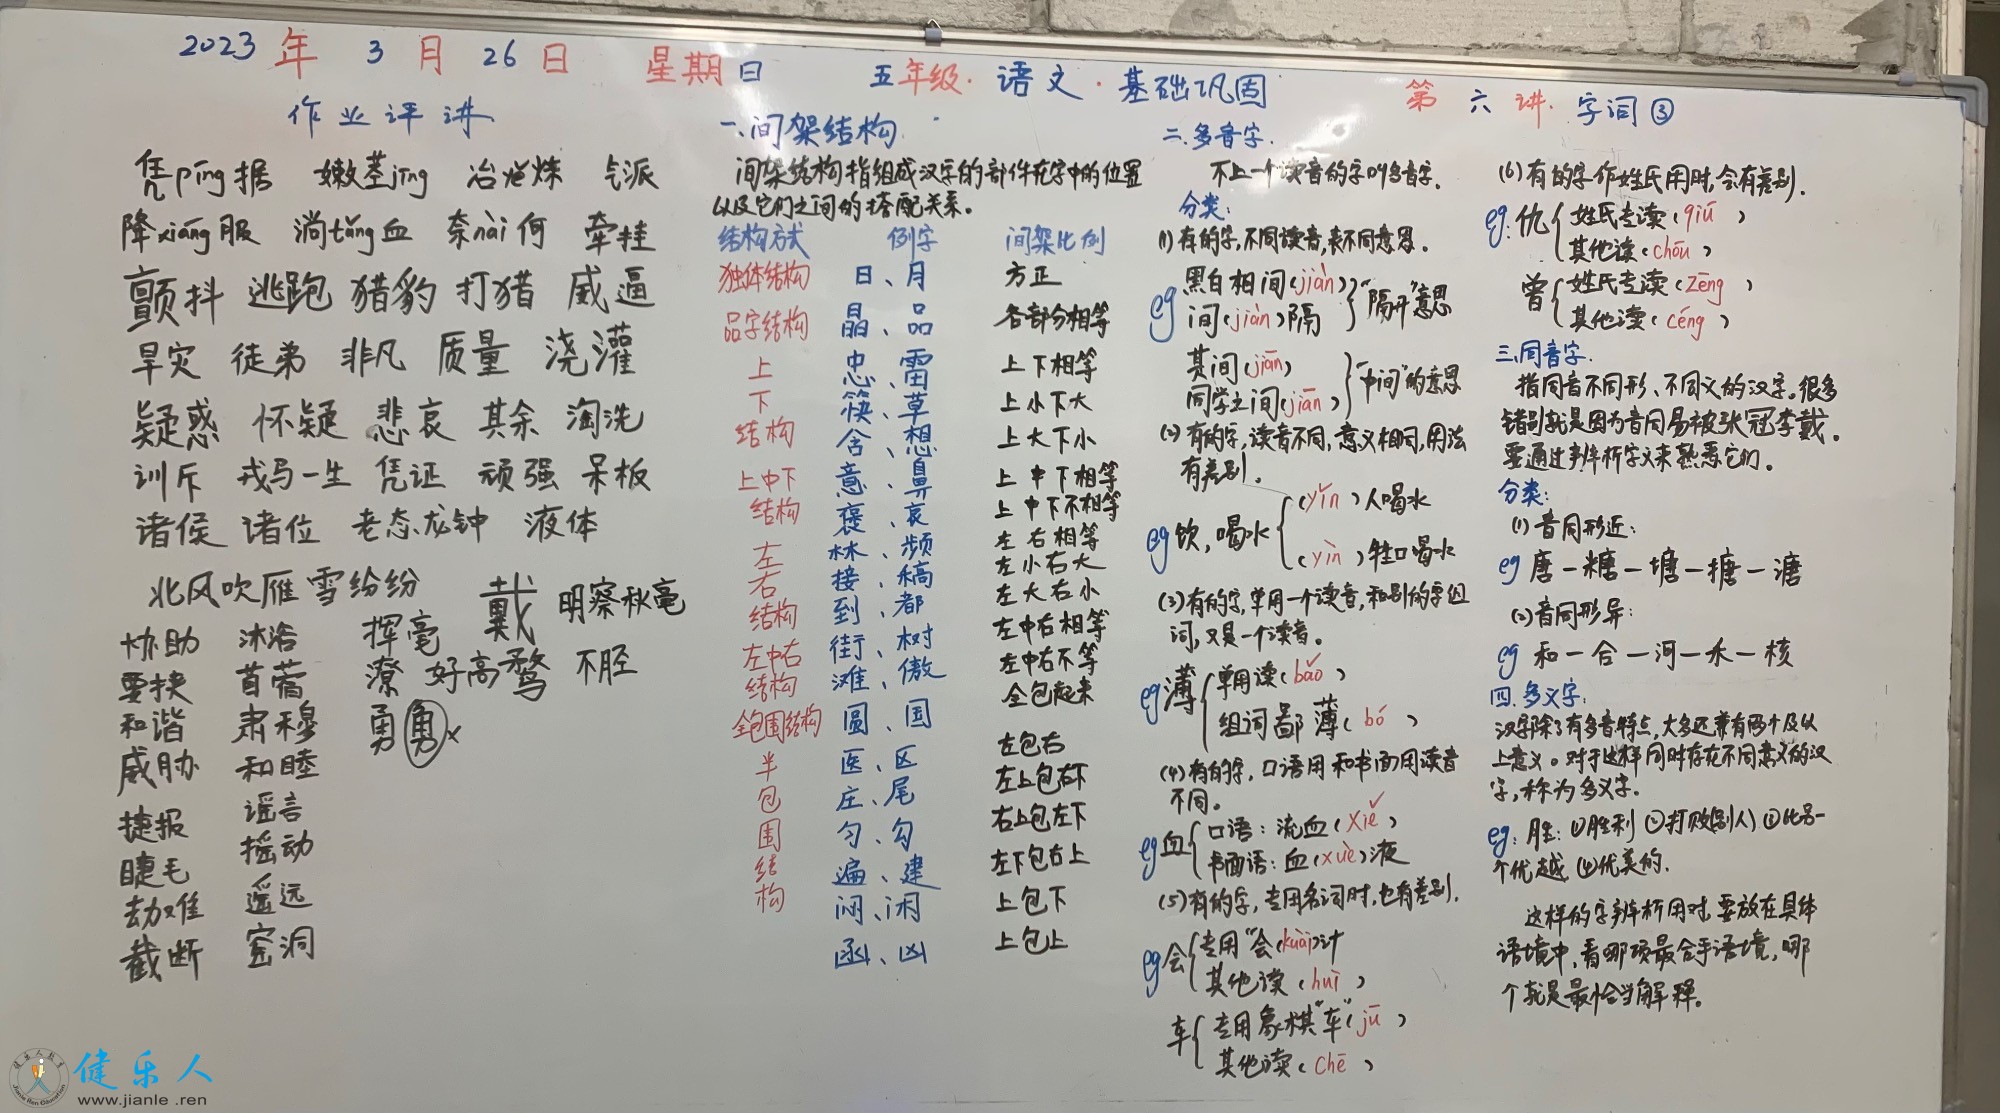 2023年3月26日 星期日 五年级·语文·基础巩固 第六讲·字词③
作业评讲
凭píng据 嫩茎jīng 冶炼 气派
降xiáng服 淌tǎng血 奈nài何 牵挂
颤抖 逃跑 猎豹 打猎 威逼
旱灾 徒弟 非凡 质量 浇灌
疑惑 怀疑 悲哀 其余 淘洗
训斥 戎马一生 凭证 顽强 呆板
诸侯 诸位 老态龙钟 液体
北风吹雁雪纷纷
戴 明察秋毫
协助 沐浴 挥毫
要挟 苜蓿 潦 好高骛 不胫
和谐 肃穆 勇
威胁 和睦
捷报 谣言
睫毛 摇动
劫难 遥远
截断 窑洞
一、间架结构
间架结构指组成汉字的部件在字中的位置
以及它们之间的搭配关系。
结构方式 例字 间架比例
独体结构 日、月 方正
品字结构 晶、品 各部分相等
上 忠、雷 上下相等
下 筷、草 上小下大
结构 含、想 上大下小
上中下 意、鼻 上中下相等
结构 褒、哀 上中下不相等
左 林、频 左右相等
右 接、稿 左小右大
结构 到、都 左大右小
左中右 街、树 左中右相等
结构 滩、傲 左中右不等
全包围结构 圆、国 全包起来
半 医、区 左包右
包 庄、尾 左上包右下
围 匀、勾 右上包左下
结 遍、建 左下包右上
构 闷、闲 上包下
函、凶 上包上
二、多音字.
不上一个读音的字叫多音字.
分类:
(1)有的字,不同读音,表不同意思.
eg 黑白相间(jiàn)
间(jiàn)隔 "隔开"意思
其间(jiān)
同学之间(jiān) "中间"的意思
(2)有的字,读音不同,意义相同,用法
有差别.
eg 饮,喝水 (yǐn)人喝水
(yìn)牲口喝水
(3)有的字,单用一个读音,和别的字组
词,又是一个读音。
eg 薄 单用读(báo)
组词鄙薄(bó)
(4)有的字,口语用和书面用读音
不同。
eg 血 口语:流血(xiě)
书面语:血(xuè)液
(5)有的字,专用名词时,也有差别.
eg 会 专用"会(kuài)计
其他读(huì)
车 专用象棋"车"(jū)
其他读(chē)
(6)有的字作姓氏用时,会有差别.
eg:仇 姓氏专读(qiú)
其他读(chóu)
曾 姓氏专读(zēng)
其他读(céng)
三、同音字.
指同音不同形、不同义的汉字。很多
错别就是因为音同易被张冠李戴。
要通过辨析字义来熟悉它们。
分类:
(1)音同形近:
eg 唐—糖—塘—搪—溏
(2)音同形异:
eg 和—合—河—禾—核
四、多义字:
汉字除了有多音特点,大多还兼有两个及以
上意义。对于这样同时存在不同意义的汉
字,称为多义字.
eg:胜:①胜利 ②打败别人 ③比另一
个优越 ④优美的.
这样的字辨析用时,要放在具体
语境中,看哪项最合乎语境,哪
个就是最恰当解释。
健乐人
www.jianle.ren